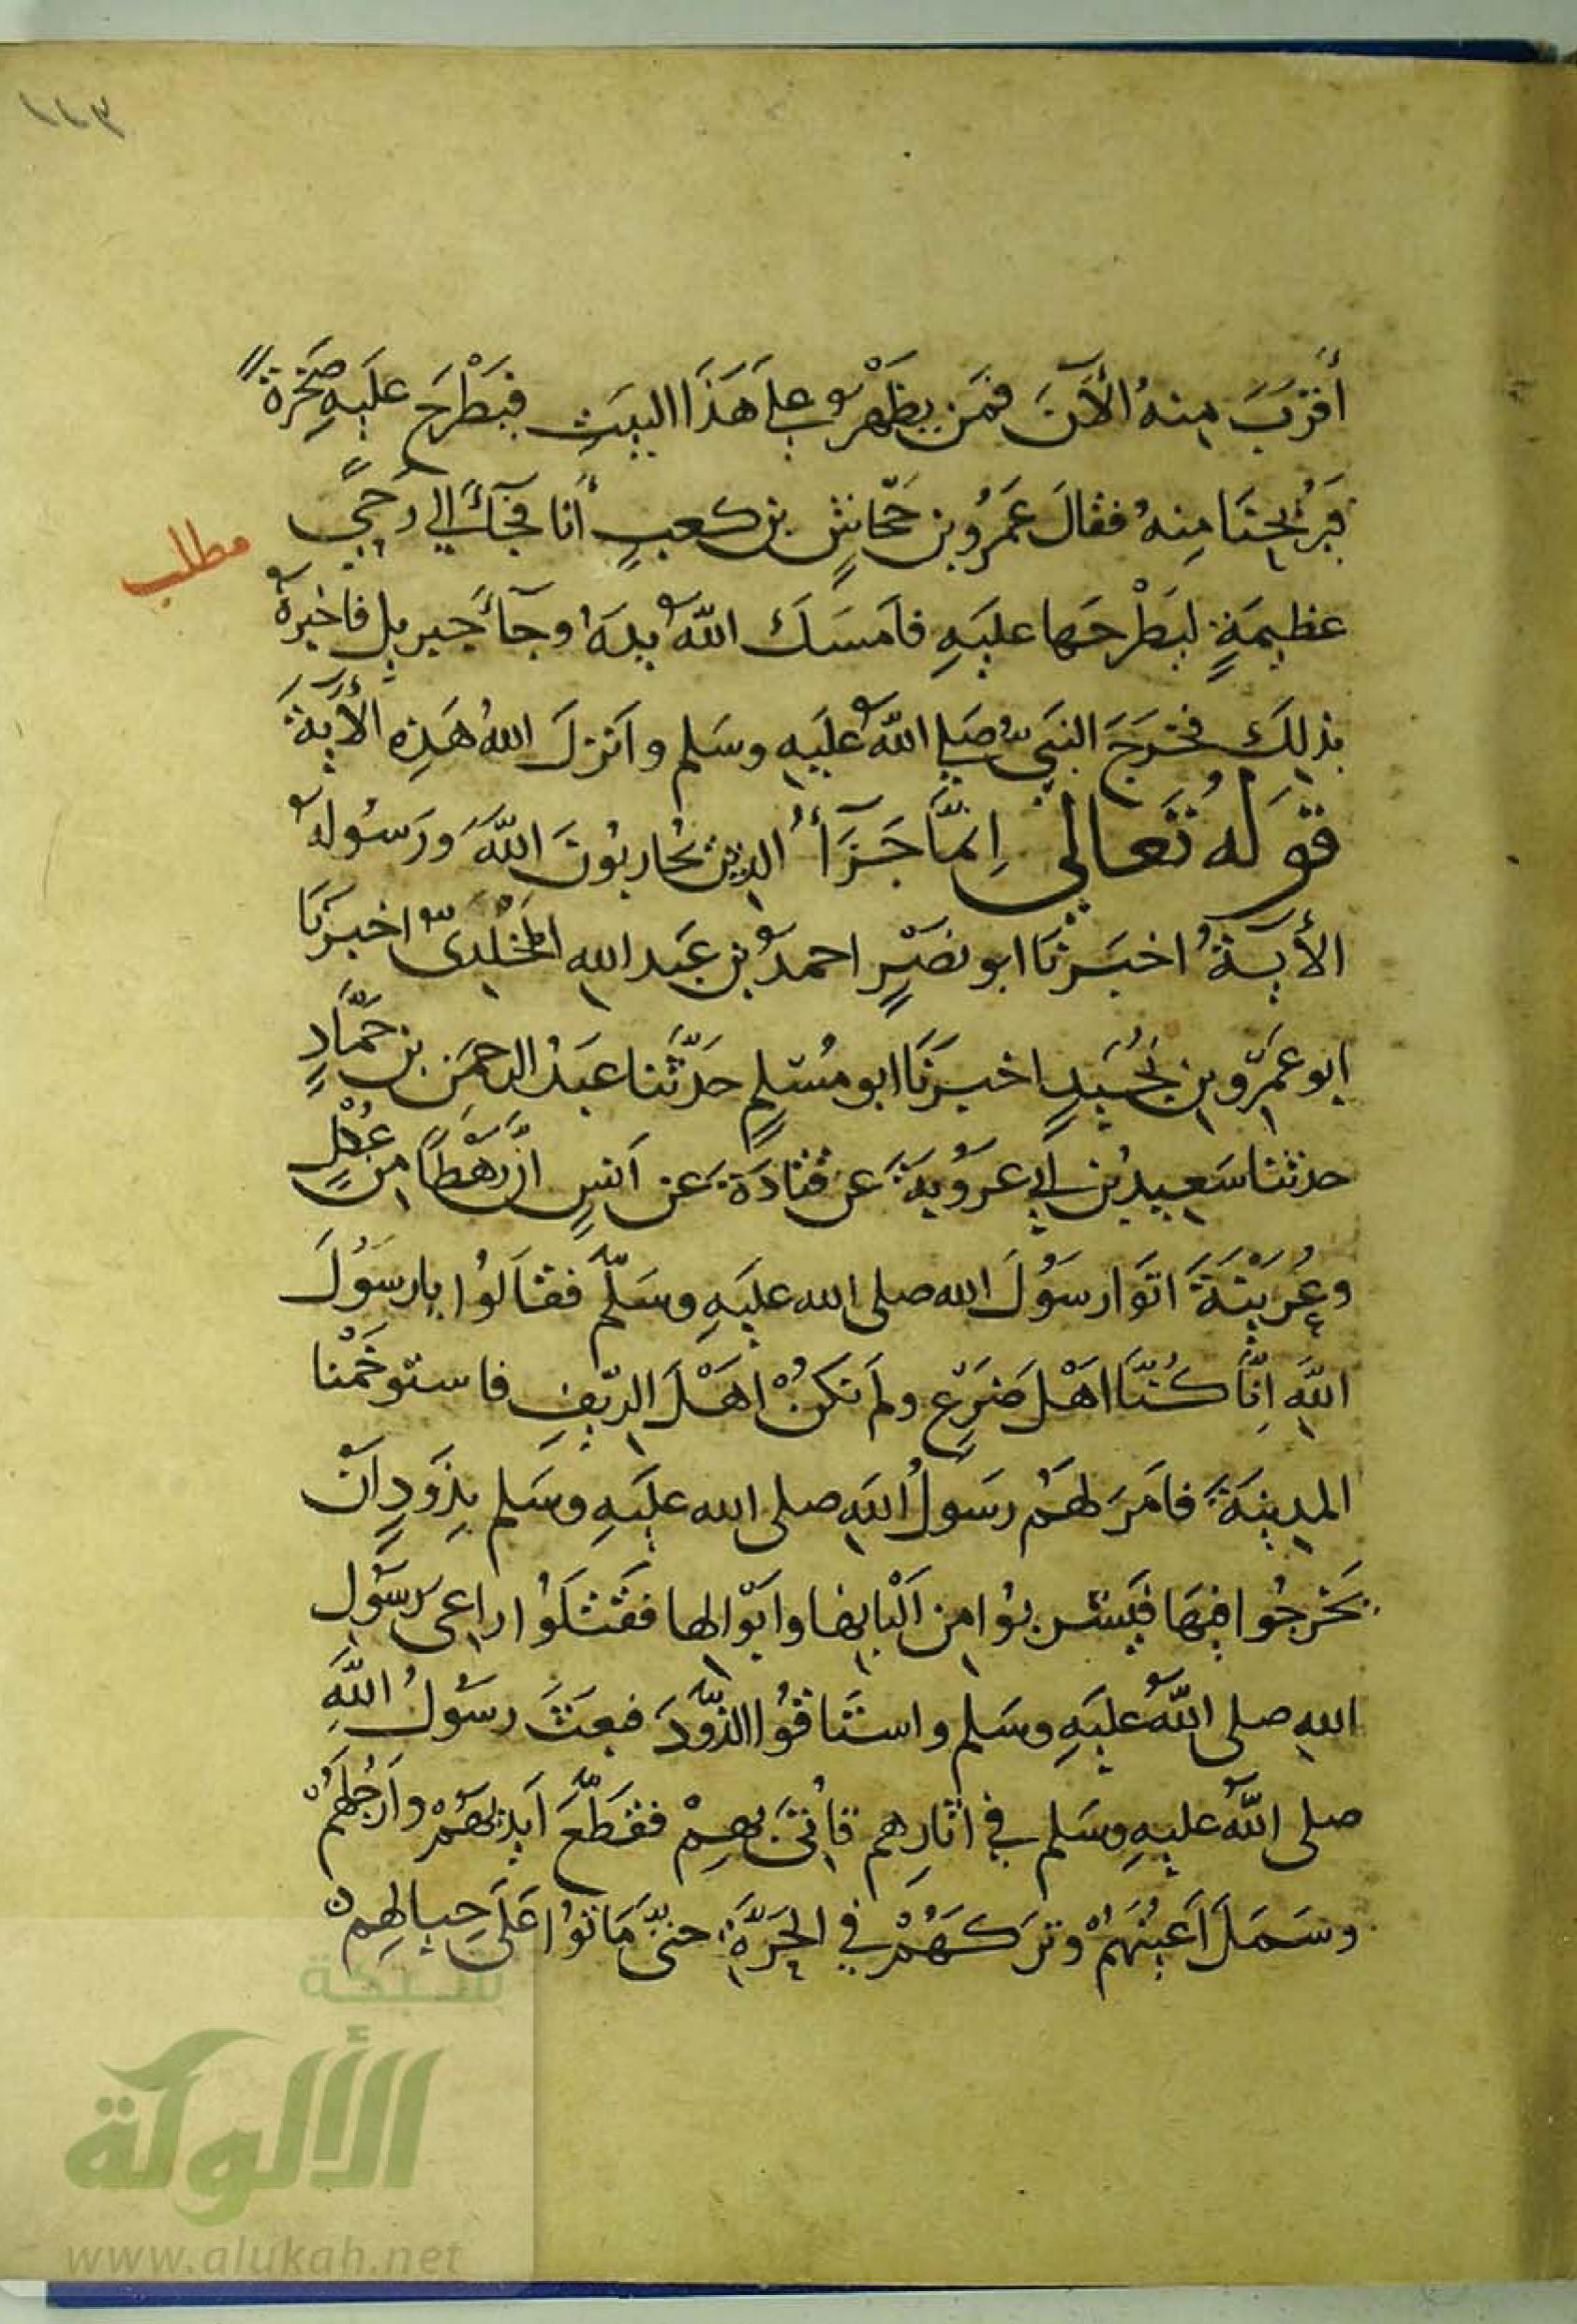 ١١٣
أقْرَبَ مِنهُ الْآنَ فمَن يظهَرُ على هَذَا البيتِ فيَطْرَح عليَهِ صَخْرَةً
فيُرِيحنَا مِنهُ فقالَ عَمرُو بن جَحّاشٍ بن كعبٍ أنا فجَآءَ إلى رَحىً
مطلب
عظيمَةٍ ليَطْرحَها عليَهِ فامَسَكَ اللّهُ يدهَ وجآءَ جبريل فاخبرهُ
بذلِكَ فخَرَجَ النبَيُّ صَلى اللّهُ عليَهِ وسَلم وانزلَ اللهُ هَذِه الآيَةَ
قَولهُ تَعَالى إنَّمَا جَزَآءُ الذين يُحارِبُونَ اللّهَ وَرَسُولهُ
الأيةُ اخبَرَنَا ابو نصَرٍ احمدُ بن عَبد اللهِ المخْلدىُّ اخبرَنَا
ابو عَمرِو بن نُجَيدٍ اخبرَنَا ابو مُسْلمٍ حَدّثَنا عَبدُ الرحمَنِ بن حَمَّادٍ
حدثنا سَعِيد بن أبي عرُوبَةَ عَن قتَادَةَ عَن أنسٍ انَّ رَهْطاً مِن عُكْلٍ
وعُرَيْنَةَ اتَوا رسَوُلَ الله صلى الله عليَهِ وسَلّمَ فقَالوُا يا رسَوُلَ
اللّهِ اِنّا كُنّا اَهْلَ ضَرعٍ ولَم نكنُ اهَلَ الرّيفِ فاستوخَمْنا
المدِينَةَ فامَرَ لهَمُ رسَوُلُ اللّهِ صلى الله عليَهِ وسَلم بذَودٍ اَنْ
يَخرجُوا فيهَا فيَشربوُا مِن اَلْبانِها وابَوالِها فقَتَلوُا راعى رسَوُلِ
اللهِ صلى اللّهُ عليَهِ وسَلم واستَاقوُا الذّودَ فبعَثَ رسَوُلُ اللّهِ
صلى اللّهُ عليهِ وسَلم في اثارِهم فأتى بِهِمْ فقَطّعَ اَيديَهمُْ وارَجُلهَمُْ
وسَمَلَ اَعيُنهَمُْ وترَكهَمُْ في الحَرّةِ حتىّ مَاتوُا عَلَى حِيالِهِمْ
شبكة
الألوكة
www.alukah.net